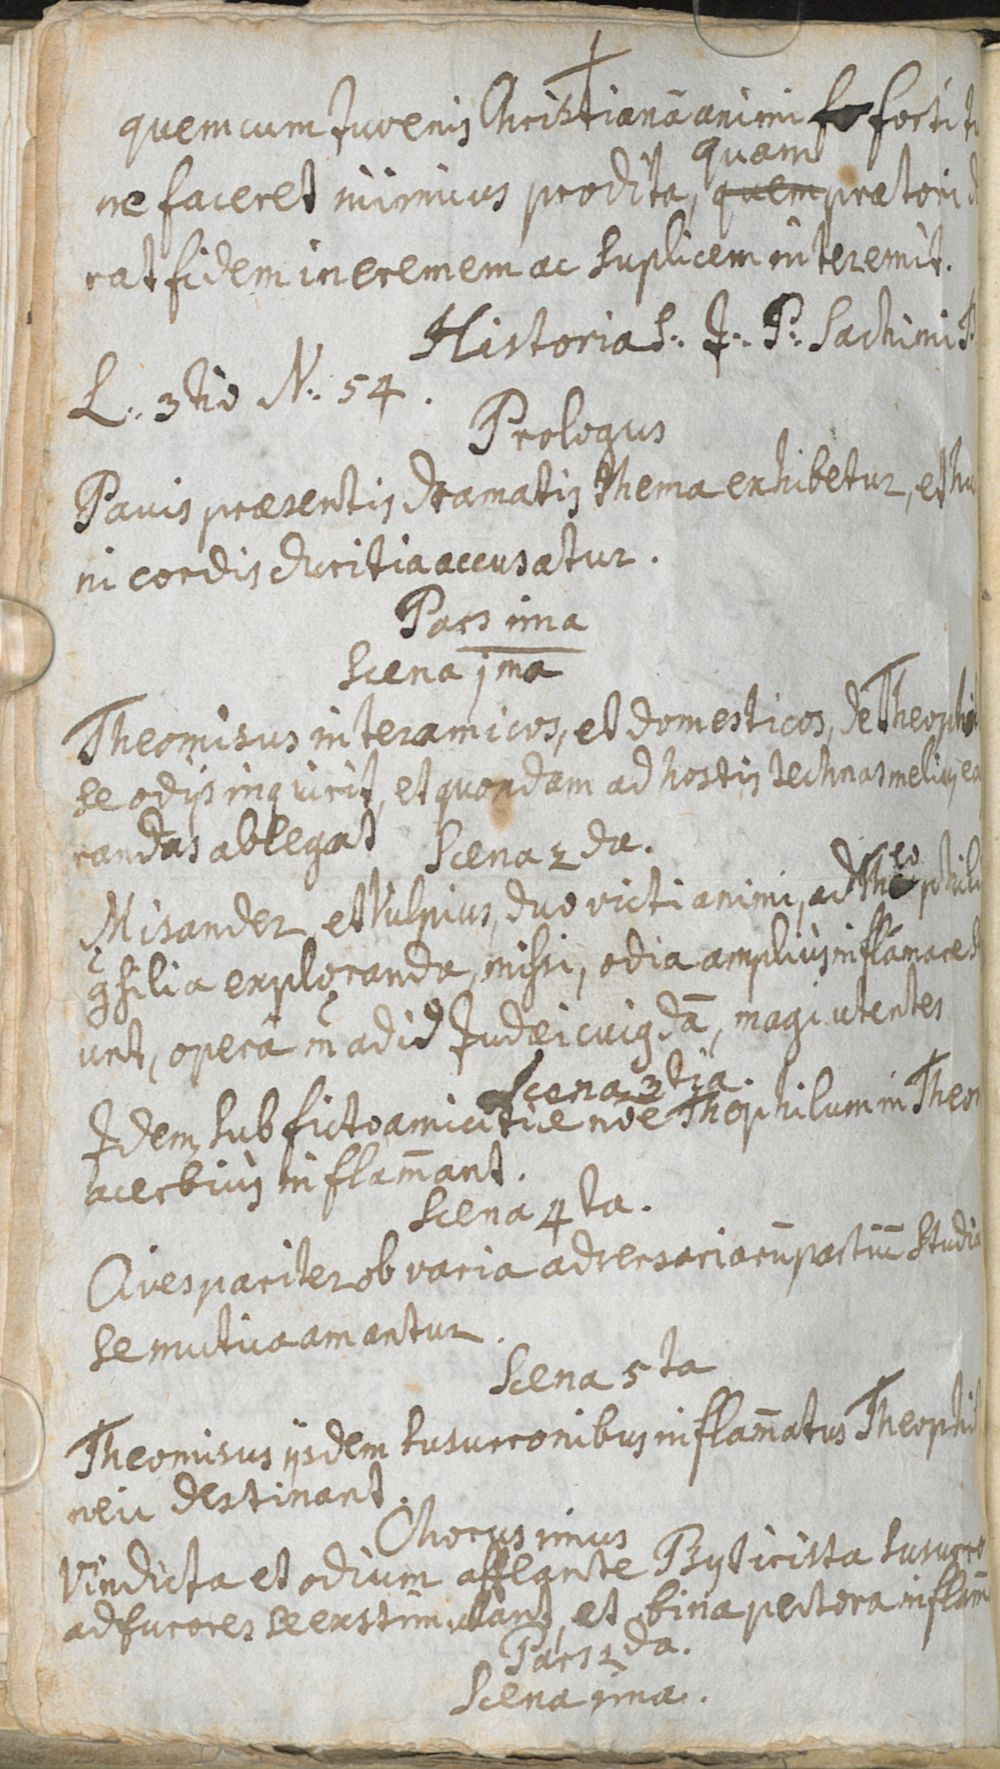 quem cum Juvenis Christianâ animi fortitu
ne faceret inimicus prodita, quam quem prætori d
rat fidem ineremem ac suplicem interemit.
Historia S: J: P: Sachini P.
L: 3tio N: 54.
Prologus
Paucis præsentis dramatis thema exhibetur, et hu
ni cordis duritia accusatur.
Pars ima
Scena jma
Theomisus inter amicos, et domesticos, de Theophi
se odijs inquirit, et quondam ad hostis technas melius ex
randas ablegat
Scena 2da.
Misander et Vulpius, duo victi animi, ad Theophil
silia exploranda missi, odia amplius inflamare
unt, operâ in ad id Judæi cuiusdã, magi utentes
Scena 3tia.
Jdem sub ficto amicitiæ noe Thophilum in Theom
acerbius inflam̄ant.
Scena 4ta.
Cives pariter ob varia adversariarũ partiũ studia
se mutuo amantur.
Scena 5ta
Theomisus ijsdem susurronibus inflam̄atus Theophil
neci destinant.
Chorus imus
Vindicta et odium afflante Byticista susurro
ad furores se exstimulant, et bina pectora inflam̄
Pars 2da.
Scena ima.